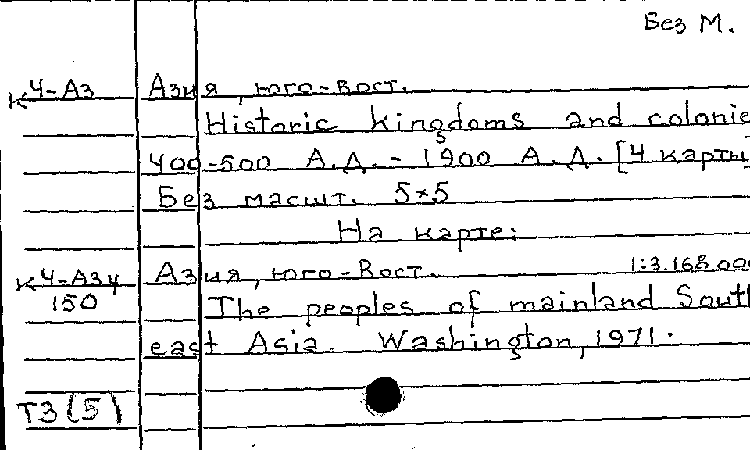 Без М.
К 4-Аз Азия, юго-Вост.
Historic kingdoms and colonie
400-500 А.Д. - 1900 А.Д. [4 карты]
Без масшт. 5×5
На карте:
К 4-Аз4 Азия, юго-Вост. 1:3.168.000
150 The peoples of mainland South
east Asia. Washington, 1971.
Т3(5)